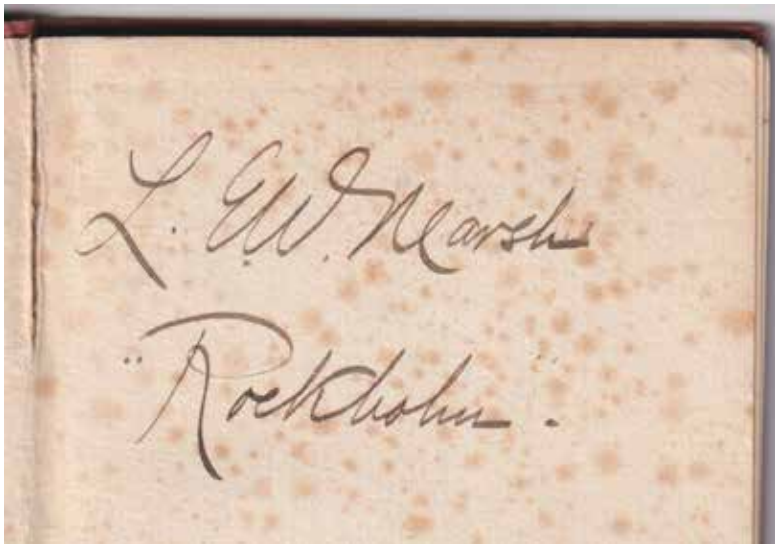 L. E.W. Marsh
"Rockholm".